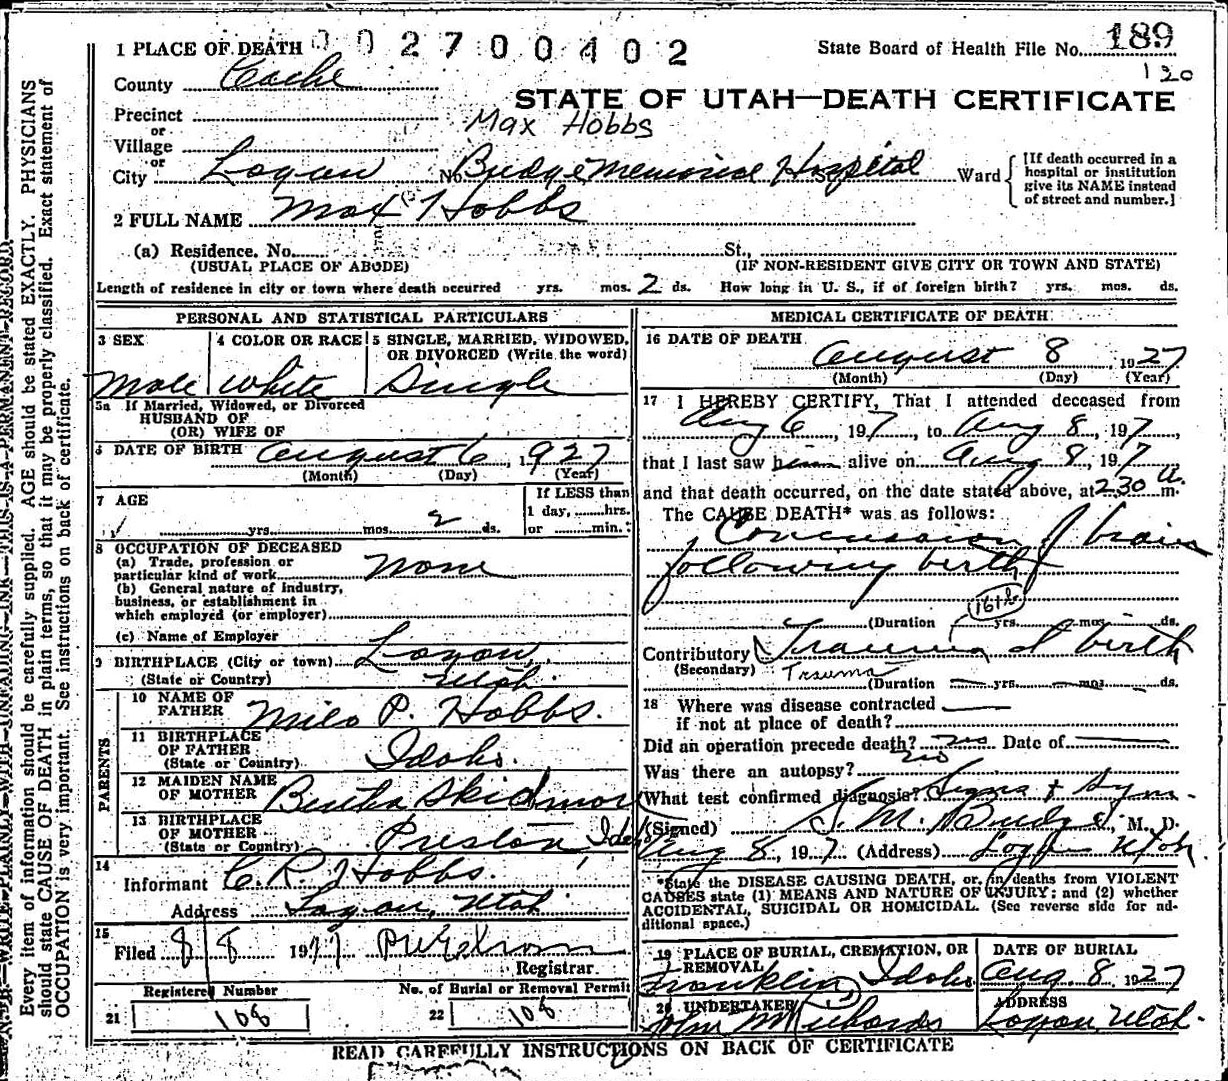 0 0 2 7 0 0 4 0 2
State Board of Health File No. 189
120
1 PLACE OF DEATH
County Cache
STATE OF UTAH—DEATH CERTIFICATE
Precinct
Max Hobbs
or
Village
or
City Logan No. Budge Memorial Hospital St. Ward
[If death occurred in a
hospital or institution
give its NAME instead
of street and number.]
2 FULL NAME Max Hobbs
(a) Residence. No. St.,
(USUAL PLACE OF ABODE) (IF NON-RESIDENT GIVE CITY OR TOWN AND STATE)
Length of residence in city or town where death occurred yrs. mos. 2 ds. How long in U. S., if of foreign birth? yrs. mos. ds.
PERSONAL AND STATISTICAL PARTICULARS
3 SEX 4 COLOR OR RACE 5 SINGLE, MARRIED, WIDOWED,
OR DIVORCED (Write the word)
Male White Single
5a If Married, Widowed, or Divorced
HUSBAND OF
(OR) WIFE OF
6 DATE OF BIRTH August 6, 1927
(Month) (Day) (Year)
7 AGE
If LESS than
1 day, hrs.
yrs. mos. 2 ds. or min.
8 OCCUPATION OF DECEASED
(a) Trade, profession or
particular kind of work None
(b) General nature of industry,
business, or establishment in
which employed (or employer)
(c) Name of Employer
9 BIRTHPLACE (City or town) Logan,
(State or Country) Utah.
PARENTS
10 NAME OF
FATHER Milo P. Hobbs.
11 BIRTHPLACE
OF FATHER
(State or Country) Idaho.
12 MAIDEN NAME
OF MOTHER Bertha Skidmore
13 BIRTHPLACE
OF MOTHER
(State or Country) Preston, Idaho
14
Informant C. R. Hobbs.
Address Logan, Utah
15
Filed 8 8 1927
Registrar.
Registered Number No. of Burial or Removal Permit
21 108 22 108
MEDICAL CERTIFICATE OF DEATH
16 DATE OF DEATH
August 8, 1927
(Month) (Day) (Year)
17 I HEREBY CERTIFY, That I attended deceased from
Aug 6, 197, to Aug 8, 197,
that I last saw him alive on Aug 8, 197
and that death occurred, on the date stated above, at 2:30 a. m.
The CAUSE DEATH* was as follows:
Concussion of brain
following birth
161b
(Duration yrs. mos. ds.
Contributory Trauma of birth
(Secondary) Trauma
(Duration yrs. mos. ds.
18 Where was disease contracted
if not at place of death?
Did an operation precede death? no Date of
Was there an autopsy? no
What test confirmed diagnosis? Signs & Sym.
(Signed) S. M. Budge, M. D.
Aug 8, 197 (Address) Logan Utah.
*State the DISEASE CAUSING DEATH, or, in deaths from VIOLENT
CAUSES state (1) MEANS AND NATURE OF INJURY; and (2) whether
ACCIDENTAL, SUICIDAL OR HOMICIDAL. (See reverse side for ad-
ditional space.)
19 PLACE OF BURIAL, CREMATION, OR
REMOVAL
Franklin, Idaho
DATE OF BURIAL
Aug. 8 1927
20 UNDERTAKER
Wm M Richards
ADDRESS
Logan, Utah.
READ CAREFULLY INSTRUCTIONS ON BACK OF CERTIFICATE
N. B.—WRITE PLAINLY WITH UNFADING INK—THIS IS A PERMANENT RECORD.
Every item of information should be carefully supplied. AGE should be stated EXACTLY. PHYSICIANS
should state CAUSE OF DEATH in plain terms, so that it may be properly classified. Exact statement of
OCCUPATION is very important. See instructions on back of certificate.